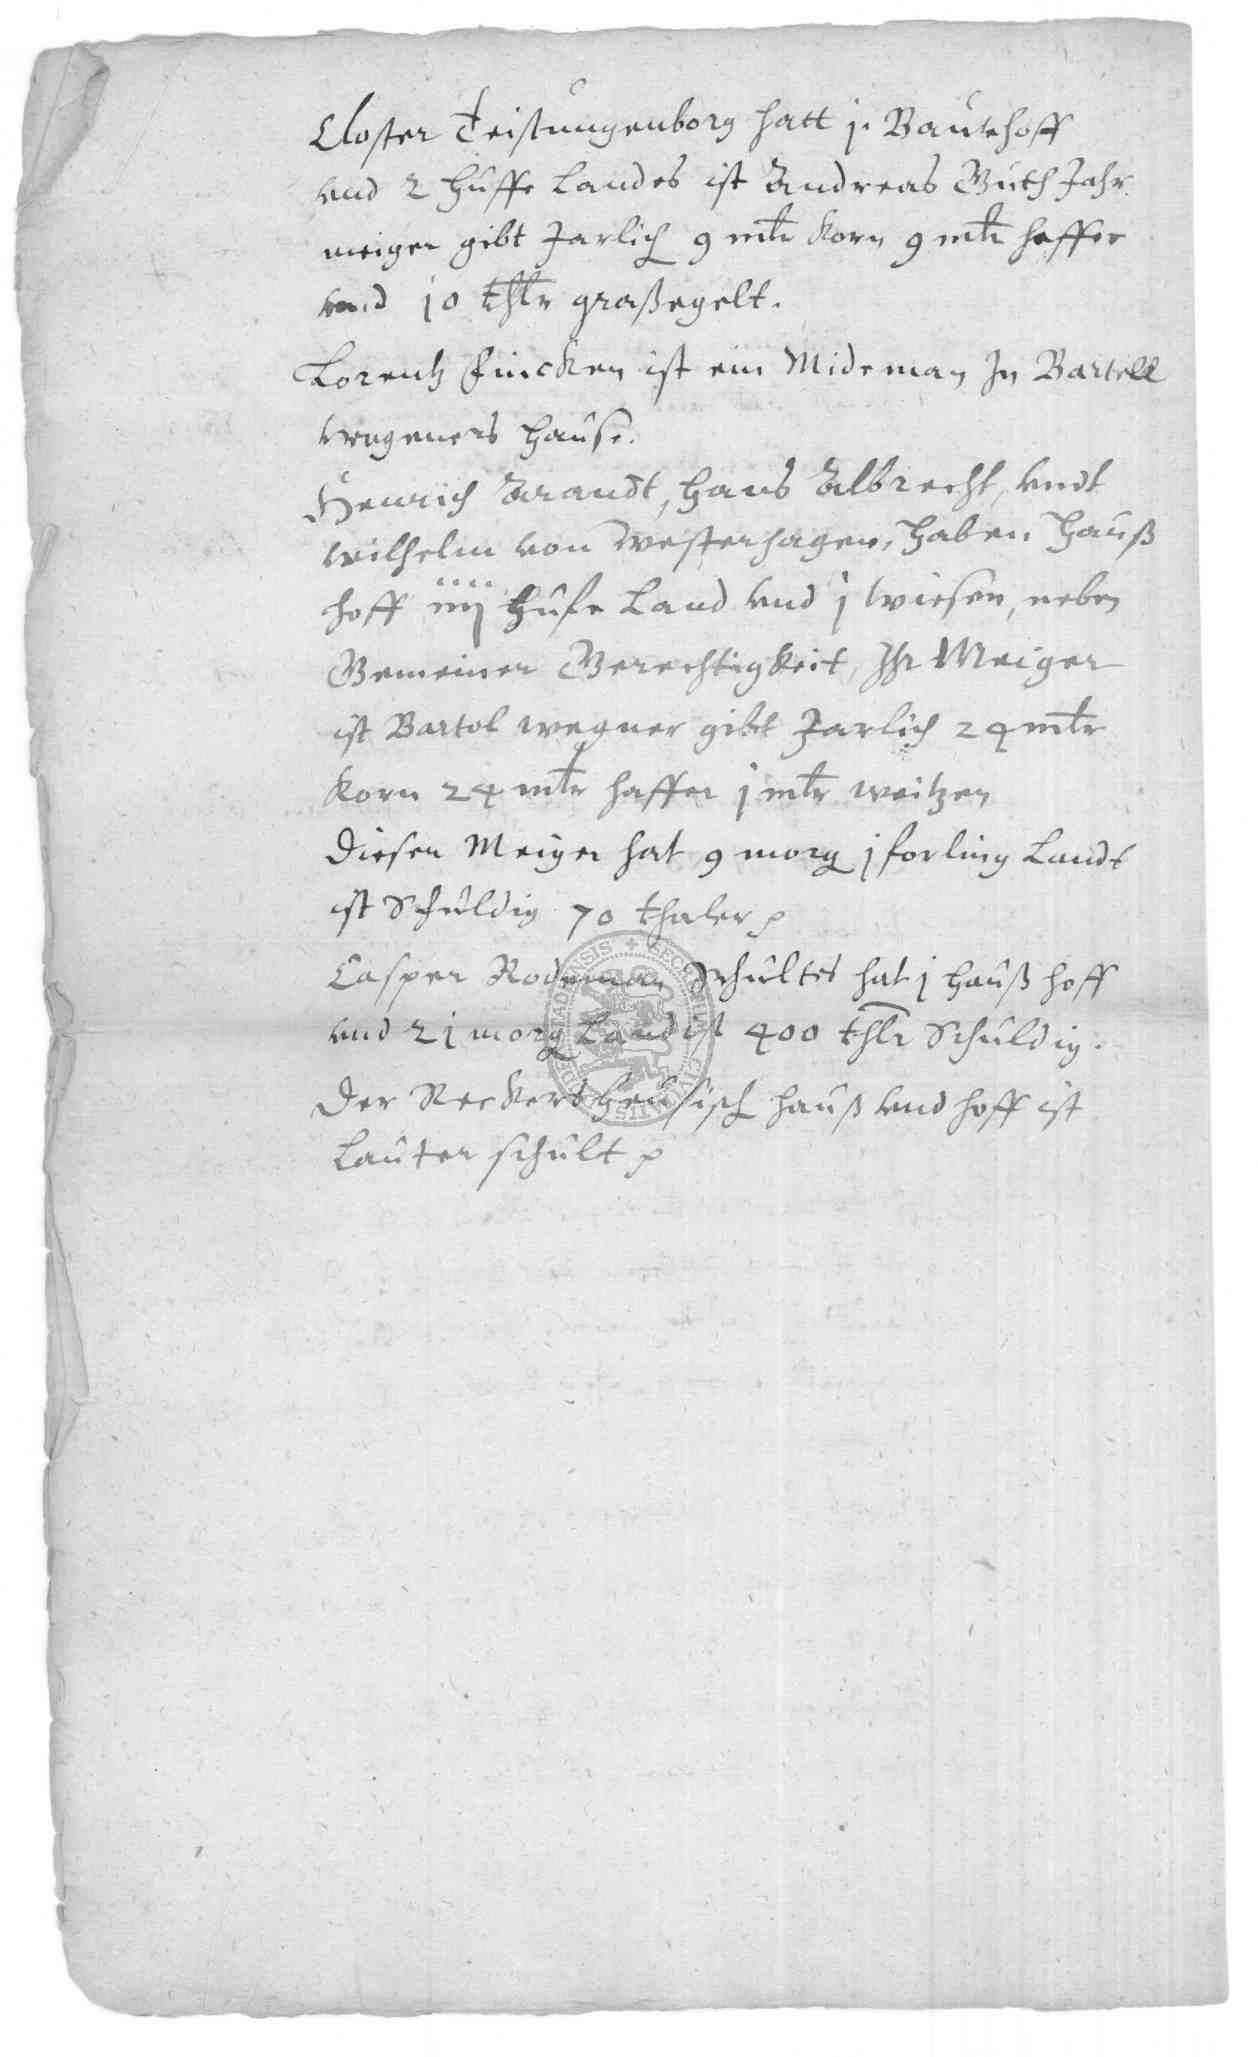 Closter Teistungenborg hatt j. Bauwhoff
vnd 2 Huffe Landes ist Andreas Guth Jahr
meiger gibt Jarlich 9 mltr Korn 9 mltr haffer
vnd 10 thlr graßegelt.
Lorentz Fincken ist ein Mideman In Bartell
wegeners Hause.
Henrich Arandt, Hans Albrecht, vndt
wilhelm von Westerhagen, haben Hauß
hoff iiij Hufe Land vnd j wiesen, neben
Gemeiner Gerechtigkeit, Ihr Meiger
ist Bartol wegner gibt Jarlich 24 mltr
Korn 24 mltr haffer j mltr weitzen
Dieser Meiger hat 9 morg j forling Landt
ist Schuldig 70 thaler
Casper Rodeman Schultes hat j Hauß hoff
vnd 21 morg Land ist 400 thlr Schuldig.
Der Reckersheusisch hauß vnd hoff ist
Lauter schult